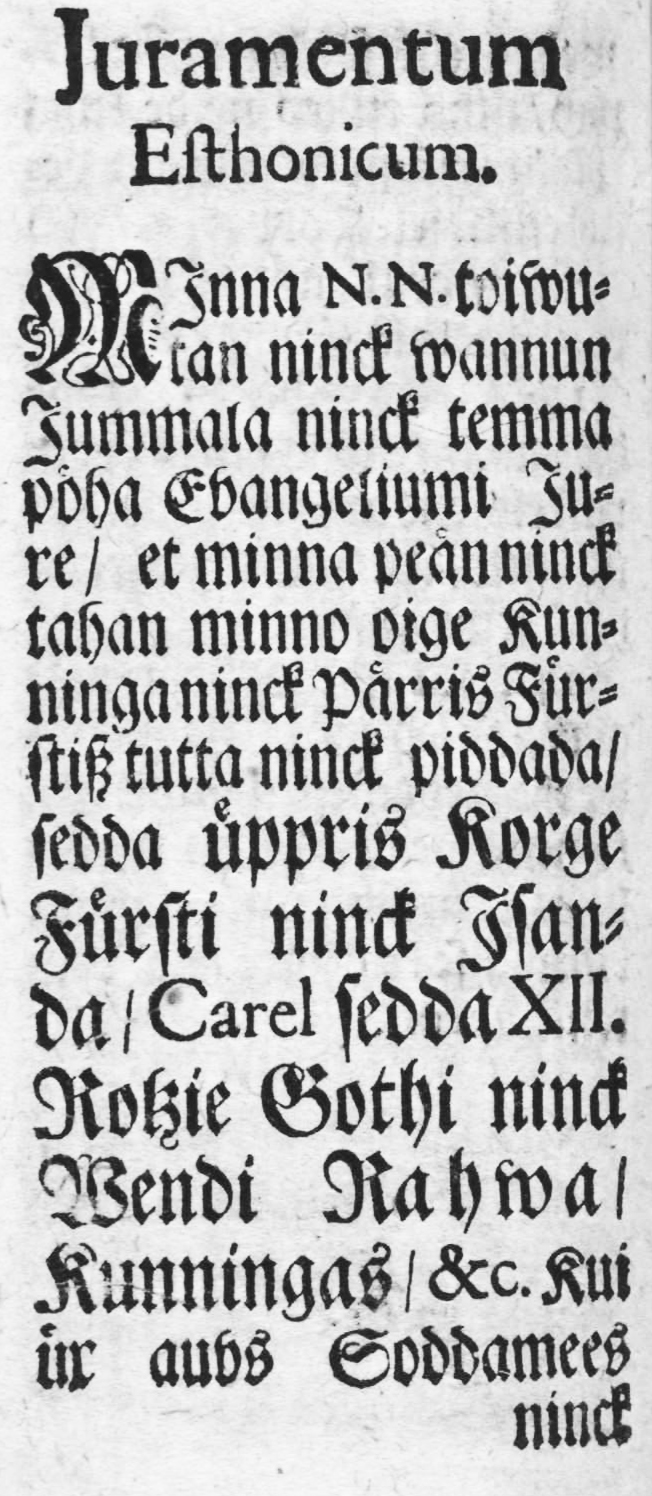 Juramentum
Eſthonicum.
MInna N. N. toiwu⸗
tan ninck wannun
Jummala ninck temma
pöha Evangeliumi Ju⸗
re/ et minna peån ninck
tahan minno oige Kun⸗
ninga ninck Pärris Für⸗
ſtiß tutta ninck piddada/
ſedda üppris Korge
Fürſti ninck Jſan⸗
da/ Carel ſedda XII.
Rotzie Gothi ninck
Wendi Rahwa/
Kunningas/ &c. Kui
üx aubs Soddamees
ninck